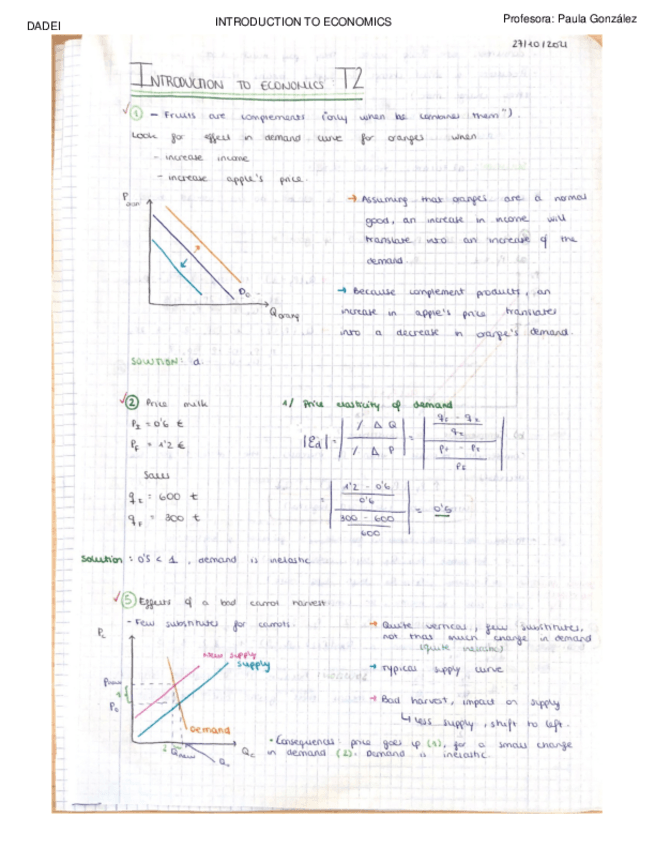 DADEI
INTRODUCTION TO ECONOMICS
Profesora: Paula González
27/10/2021
INTRODUCTION TO ECONOMICS: T2
① - Fruits are complements ("only when he combines them").
Look for effect in demand curve for oranges when
- increase income
- increase apple's price.
P
→ Assuming that oranges are a normal
good, an increase in income will
translate into an increase of the
demand.
→ Because complement products, an
increase in apple's price translates
into a decrease in orange's demand.
D₀
Q orang
SOLUTION: d.
② Price milk
P_I = 0'6 €
P_F = 1'2 €
Sales
q_I = 600 t
q_F = 300 t
1/ Price elasticity of demand
|Ed| = | % Δ Q / % Δ P | =
= | 1'2 - 0'6 / 0'6 / 300 - 600 / 600 | = 0'5
Solution: 0'5 < 1, demand is inelastic
⑤ Effects of a bad carrot harvest.
- Few substitutes for carrots.
→ Quite vertical, few substitutes,
not that much change in demand
(quite inelastic)
→ Typical supply curve
→ Bad harvest, impact on supply
↳ less supply, shift to left.
New supply
supply
Pnew
P₀
Demand
Qnew
Q₀
Qc
• Consequences: price goes up (1), for a small change
in demand (2). Demand is inelastic.